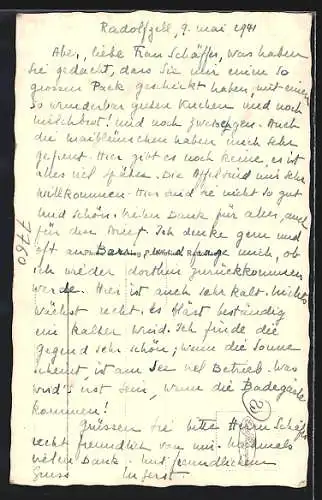 Radolfzell, 9. mai 1941
Aber, liebe Frau Schäffer, was haben
sie gedacht, dass Sie mir einen so
grossen Pack geschickt haben, mit einem
so wunderbar guten Kuchen und noch
milchbrot! und noch zwetschgen. Auch
die maiblümchen haben mich sehr
gefreut. Hier gibt es noch keine, es ist
alles viel später. Die Äpfel sind mir sehr
willkommen. Hier sind sie nicht so gut
und schön. Vielen Dank für alles, auch
für den Brief. Ich denke gern und
oft an und frage mich, ob
ich wieder dorthin zurückkommen
werde. Hier ist auch sehr kalt. Nichts
wächst recht, es bläst beständig
ein kalter Wind. Ich finde die
Gegend sehr schön; wenn die Sonne
scheint, ist am See viel Betrieb. Was
wird's erst sein, wenn die Badegäste
kommen!
Grüssen Sie bitte Herrn Schäffer
recht freundlich von mir. Nochmals
vielen Dank. Mit freundlichem
Gruss
7760